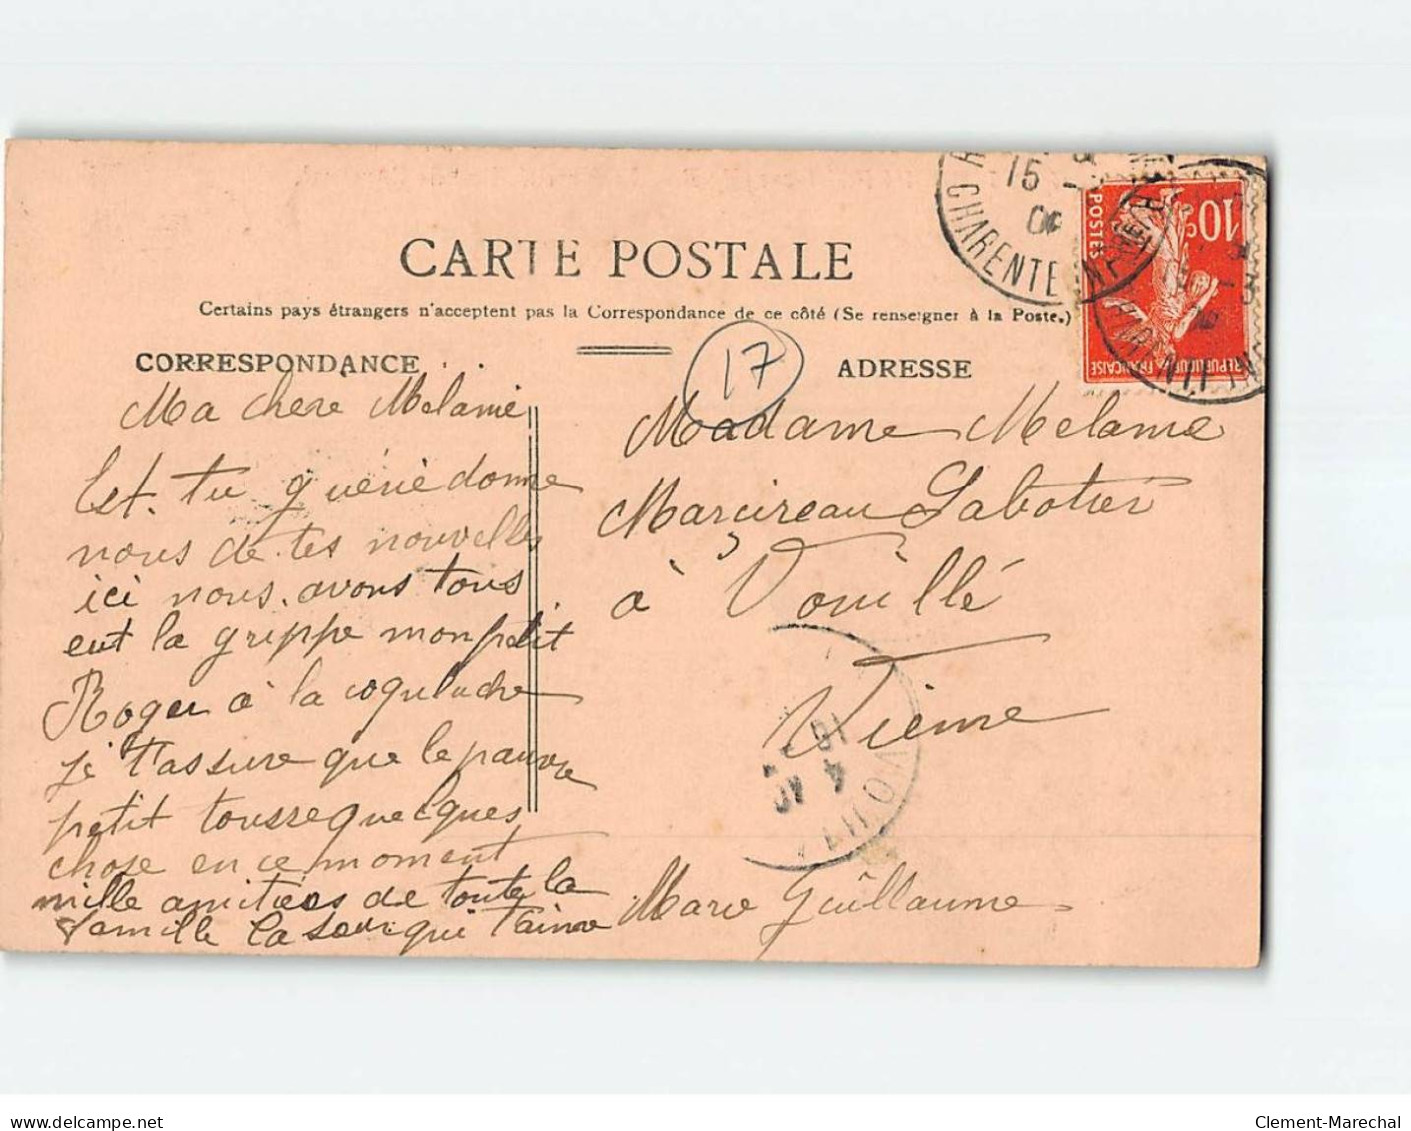 CARTE POSTALE
Certains pays étrangers n'acceptent pas la Correspondance de ce côté (Se renseigner à la Poste.)
CORRESPONDANCE
Ma chere Mélanie
Est. tu guérie donne
nous de tes nouvelles
ici nous. avons tous
eut la grippe mon petit
Roger a la coqueluche
je t'assure que le pauvre
petit tousse quelques
chose en ce moment
mille amitiées de toute la
famille la soeur qui t'aime
Marie Guillaume
17
ADRESSE
Madame Melanie
Marcireau Sabotier
à Vouillé
Vienne
15
CHARENTE
10c
POSTES
REPUBLIQUE FRANÇAISE
VOUILLÉ
clement-marechal
Clement-Marechal